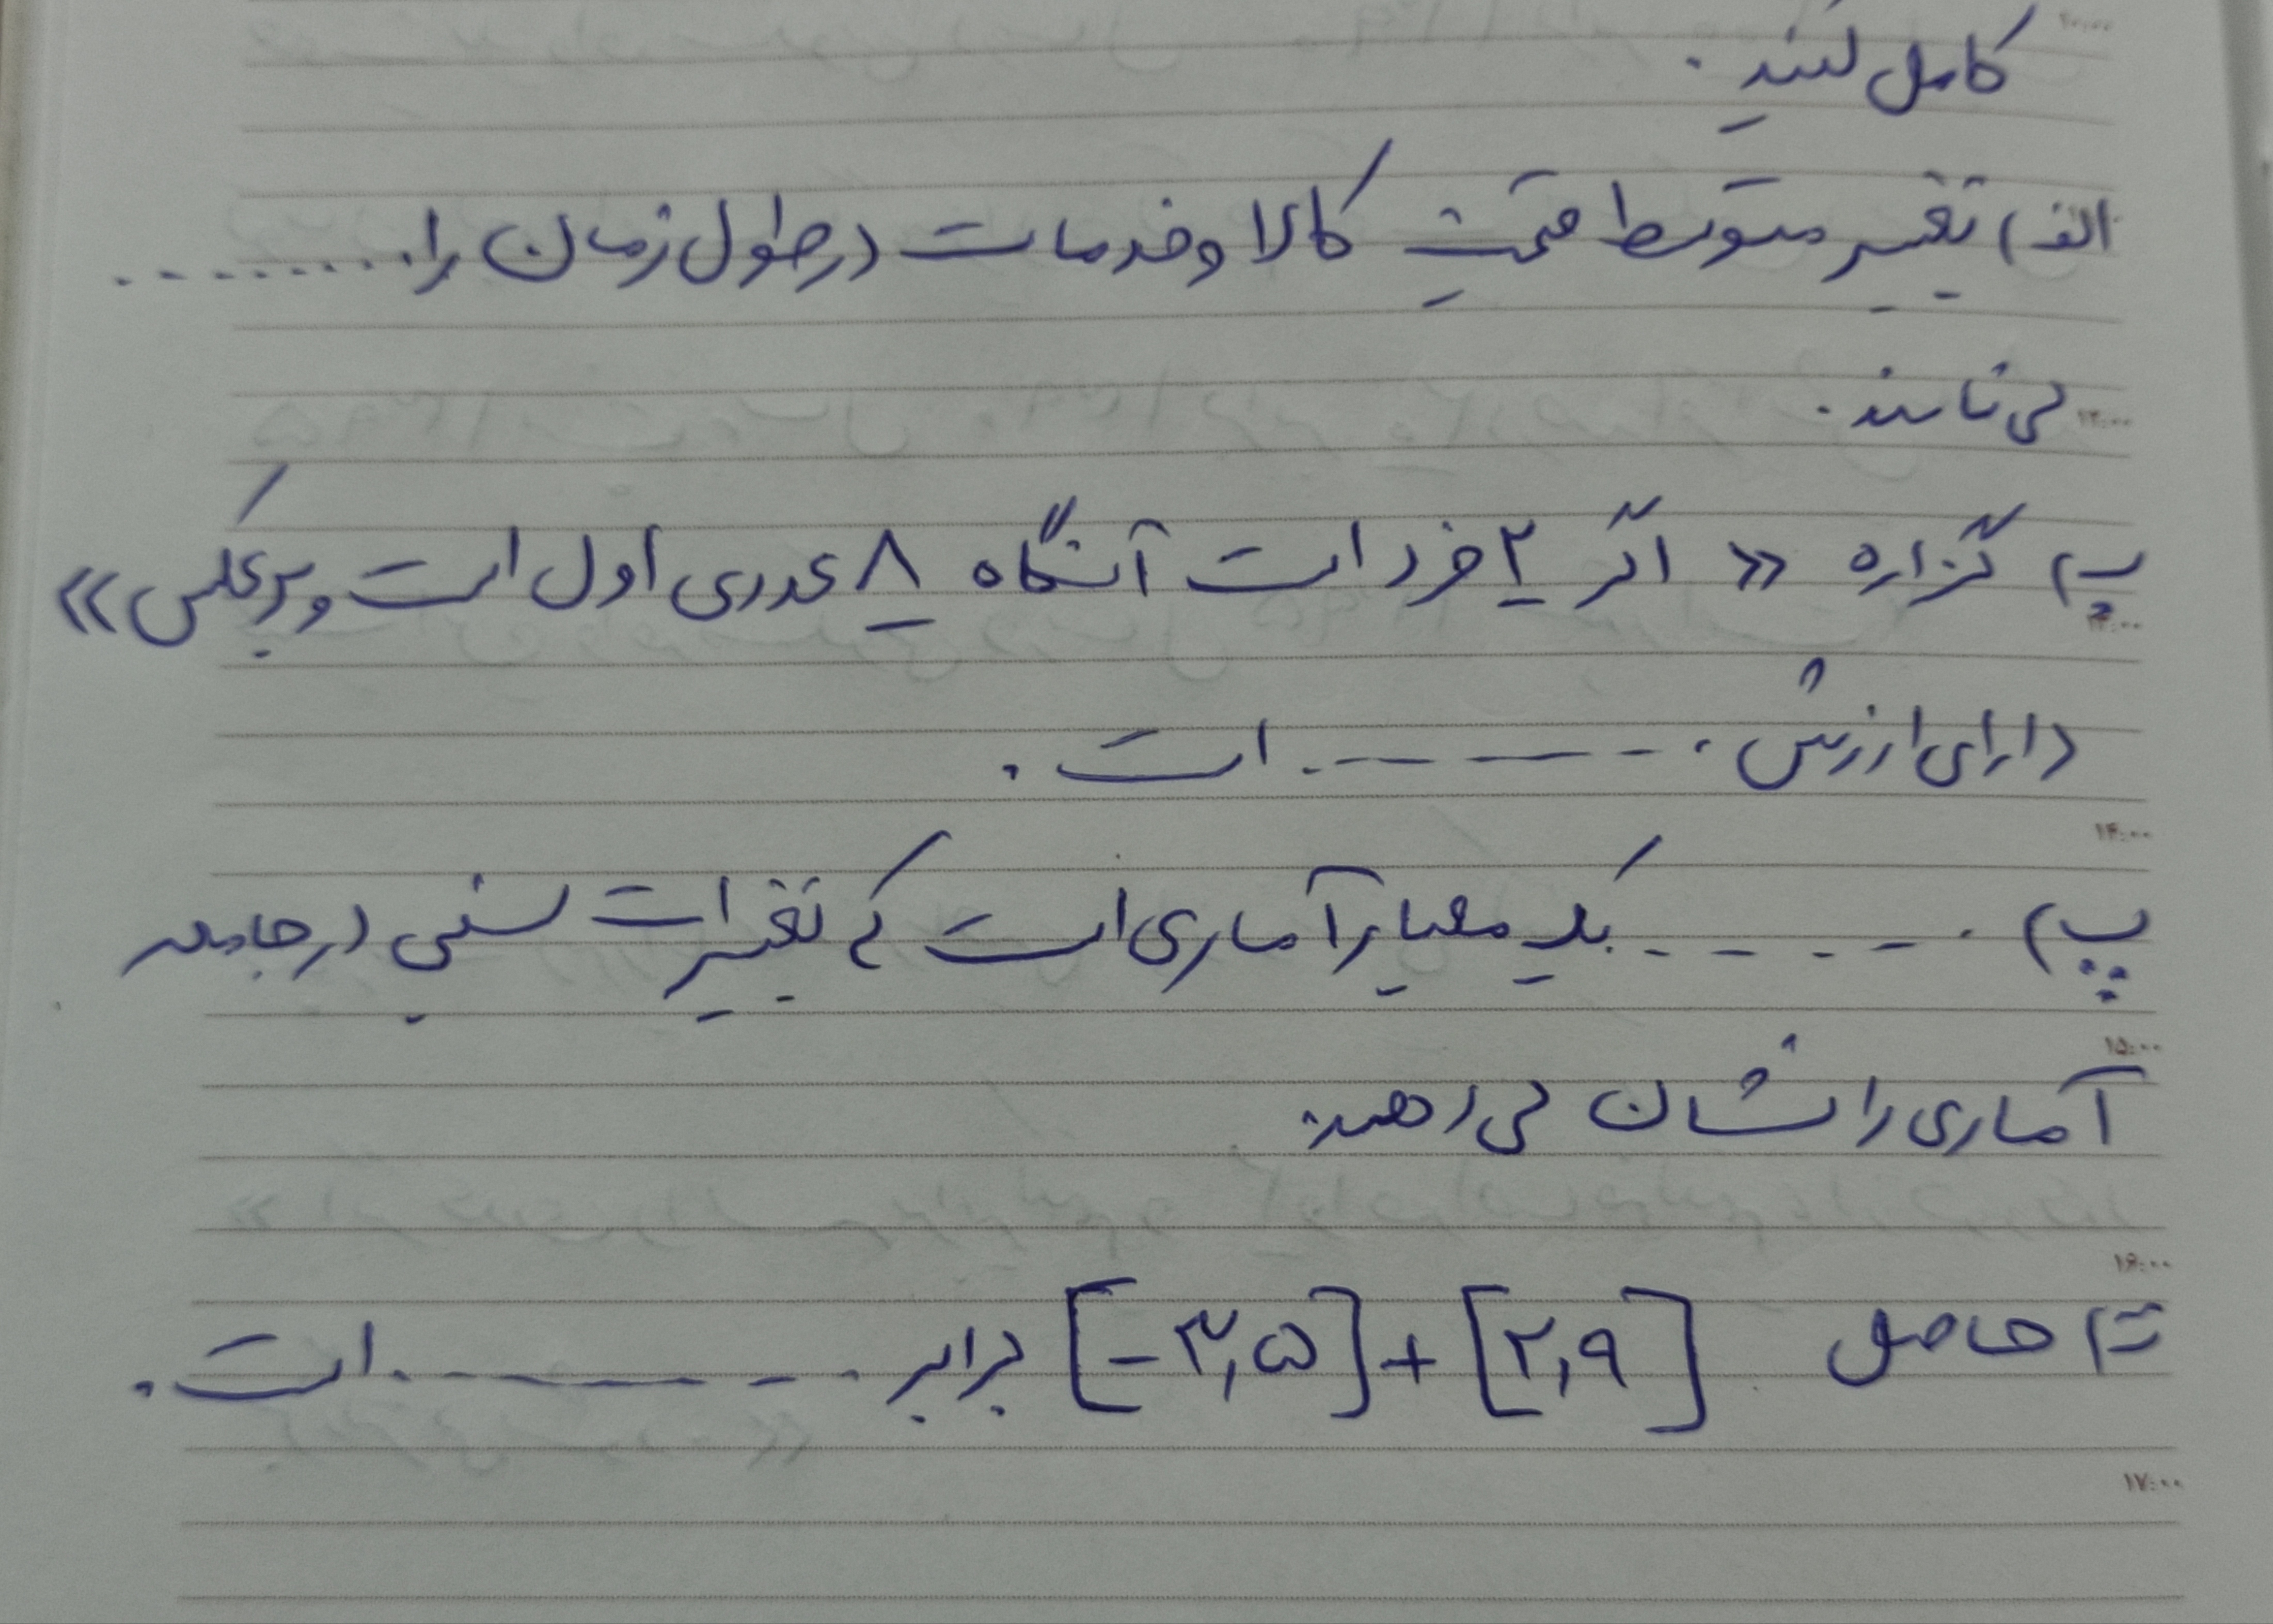 کامل کنید.
الف) تغییر متوسط قیمت کالا و خدمات در طول زمان را .........
می نامند.
ب) گزاره « اگر ۲ فرد است آنگاه ۸ عددی اول است و برعکس »
دارای ارزش ......... است.
پ) ......... یک معیار آماری است که تغییرات نسبی در جامعه
آماری را نشان می دهد.
ت) حاصل [۲,۹] + [-۳,۵] برابر ......... است.
۱۴:۰۰
۱۵:۰۰
۱۶:۰۰
۱۷:۰۰